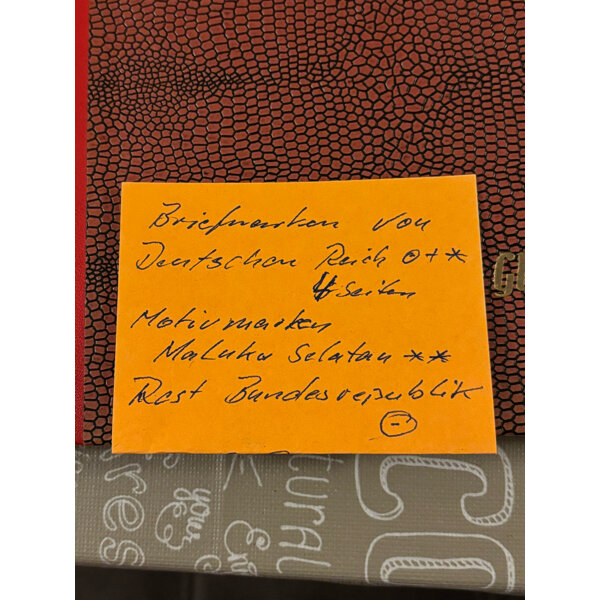 Briefmarken von
Deutschen Reich ⊙ + *
4 Seiten
Motivmarken
Maluku Selatan **
Rest Bundesrepublik
⊙
your
tural
C
res